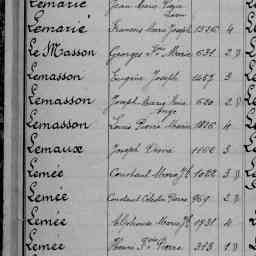 Lemarié Jean Marie
Lemarié François Marie Joseph 1576 4
Le Masson Georges Fcs Marie 631 2 J
Lemasson Eugène Joseph 1457 3
Lemasson Joseph Marie 620 2 J
Ange
Lemasson Louis Pierre Marie 1816 4
Lemaux Joseph 1106 3
Lemée Constant Marie Jh 1022 3 J
Lemée Constant Célestin Pierre 969 2 J
Lemée Alphonse Marie Jh 1931 4
Lemée Pierre 313 1 J